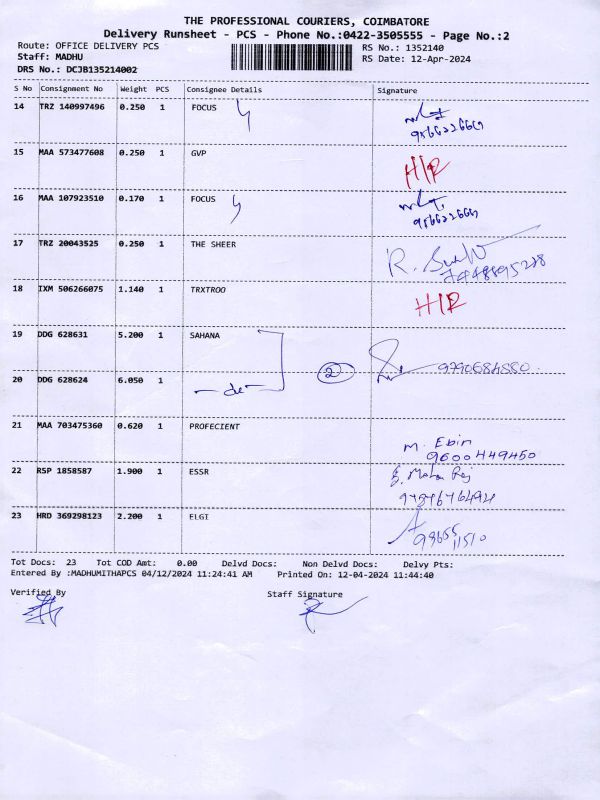 THE PROFESSIONAL COURIERS, COIMBATORE
Delivery Runsheet - PCS - Phone No.:0422-3505555 - Page No.:2
Route: OFFICE DELIVERY PCS RS No.: 1352140
Staff: MADHU RS Date: 12-Apr-2024
DRS No.: DCJB135214002
S No Consignment No Weight PCS Consignee Details Signature
14 TRZ 140997496 0.250 1 FOCUS
15 MAA 573477608 0.250 1 GVP H/R
16 MAA 107923510 0.170 1 FOCUS
17 TRZ 20043525 0.250 1 THE SHEER
18 IXM 506266075 1.140 1 TRXTROO H/R
19 DDG 628631 5.200 1 SAHANA
2 9790684550
20 DDG 628624 6.050 1 - do -
21 MAA 703475360 0.620 1 PROFECIENT M. Ebin
9600449450
22 RSP 1858587 1.900 1 ESSR
23 HRD 369298123 2.200 1 ELGI 98655
11510
Tot Docs: 23 Tot COD Amt: 0.00 Delvd Docs: Non Delvd Docs: Delvy Pts:
Entered By :MADHUMITHAPCS 04/12/2024 11:24:41 AM Printed On: 12-04-2024 11:44:40
Verified By Staff Signature